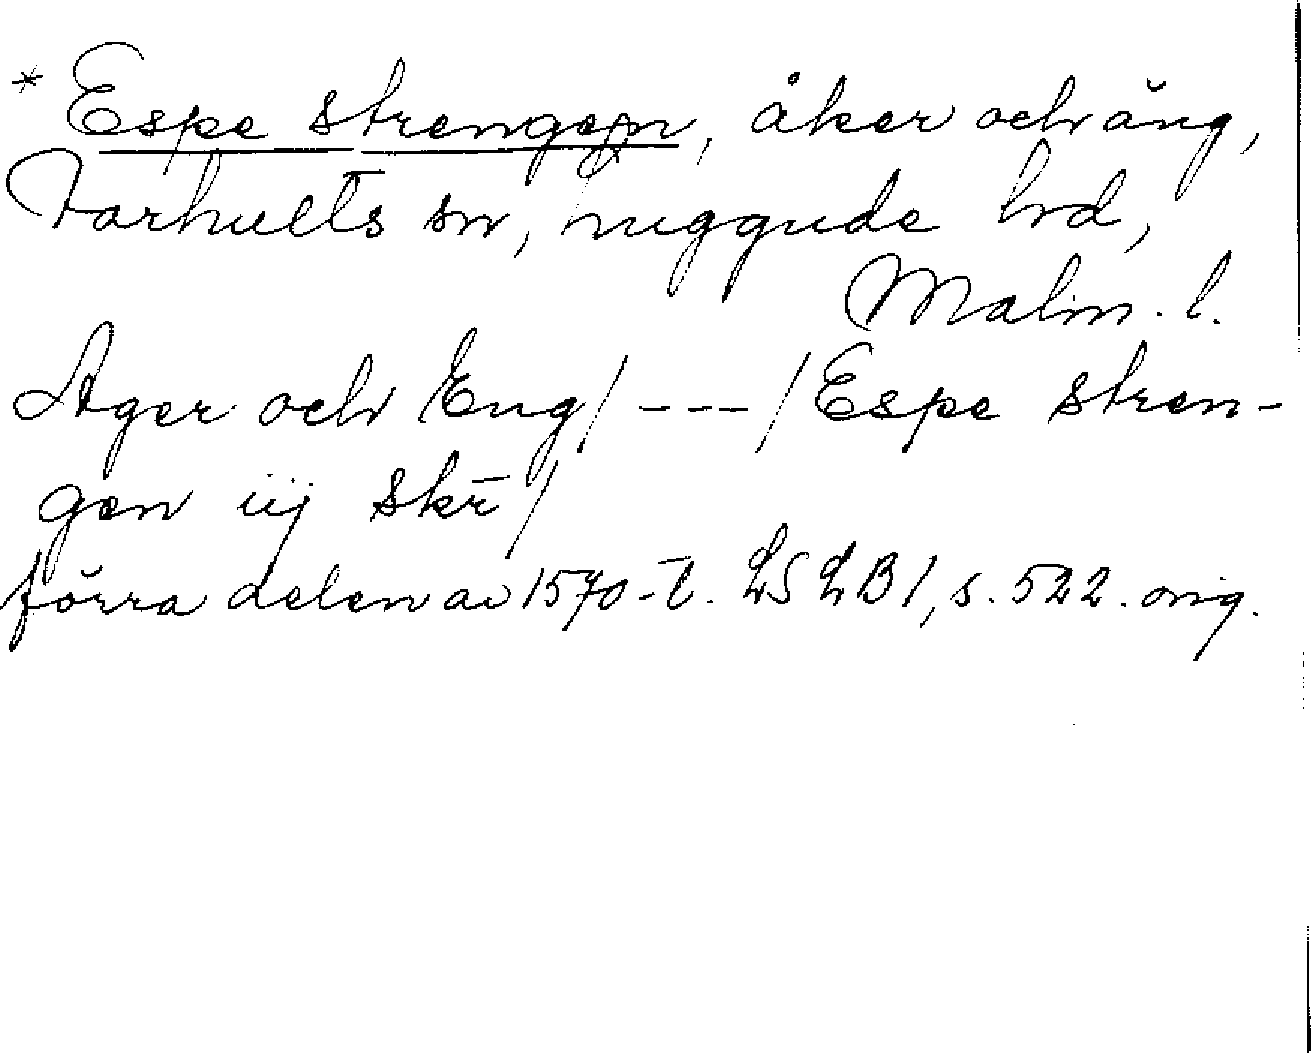 * Espe strengen, åker och äng,
Farhults sn, Luggude hd,
Malm. l.
Ager och Eng/ --- / Espe stren-
gen iij skr̄ /
förra delen av 1570-t. LSLB1, s. 522. orig.